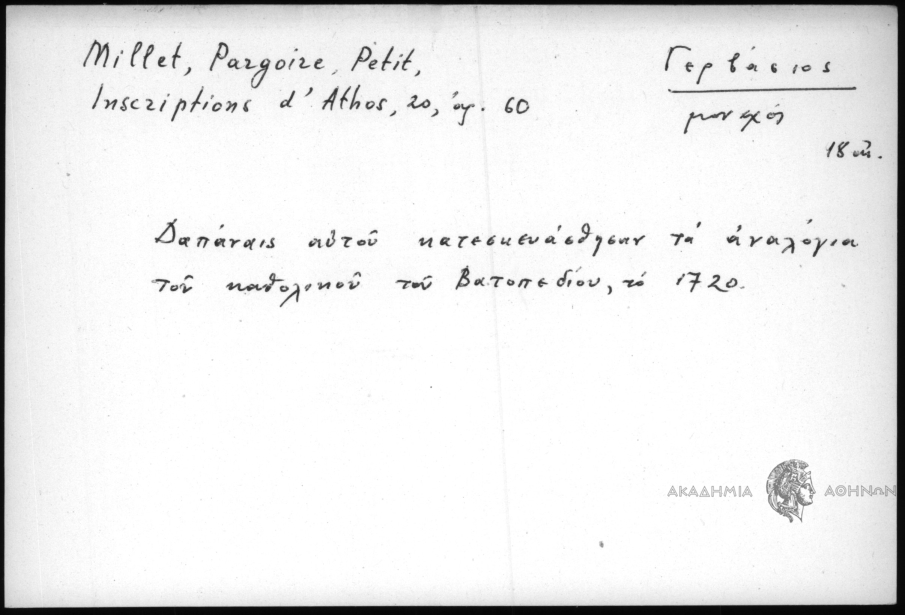 Millet, Pargoire, Petit,
Inscriptions d'Athos, 20, ἀρ. 60
Γερβάσιος
μοναχός
18 αἰ.
Δαπάναις αὐτοῦ κατεσκευάσθησαν τά ἀναλόγια
τοῦ καθολικοῦ τοῦ Βατοπεδίου, τό 1720.
ΑΚΑΔΗΜΙΑ ΑΘΗΝΩΝ